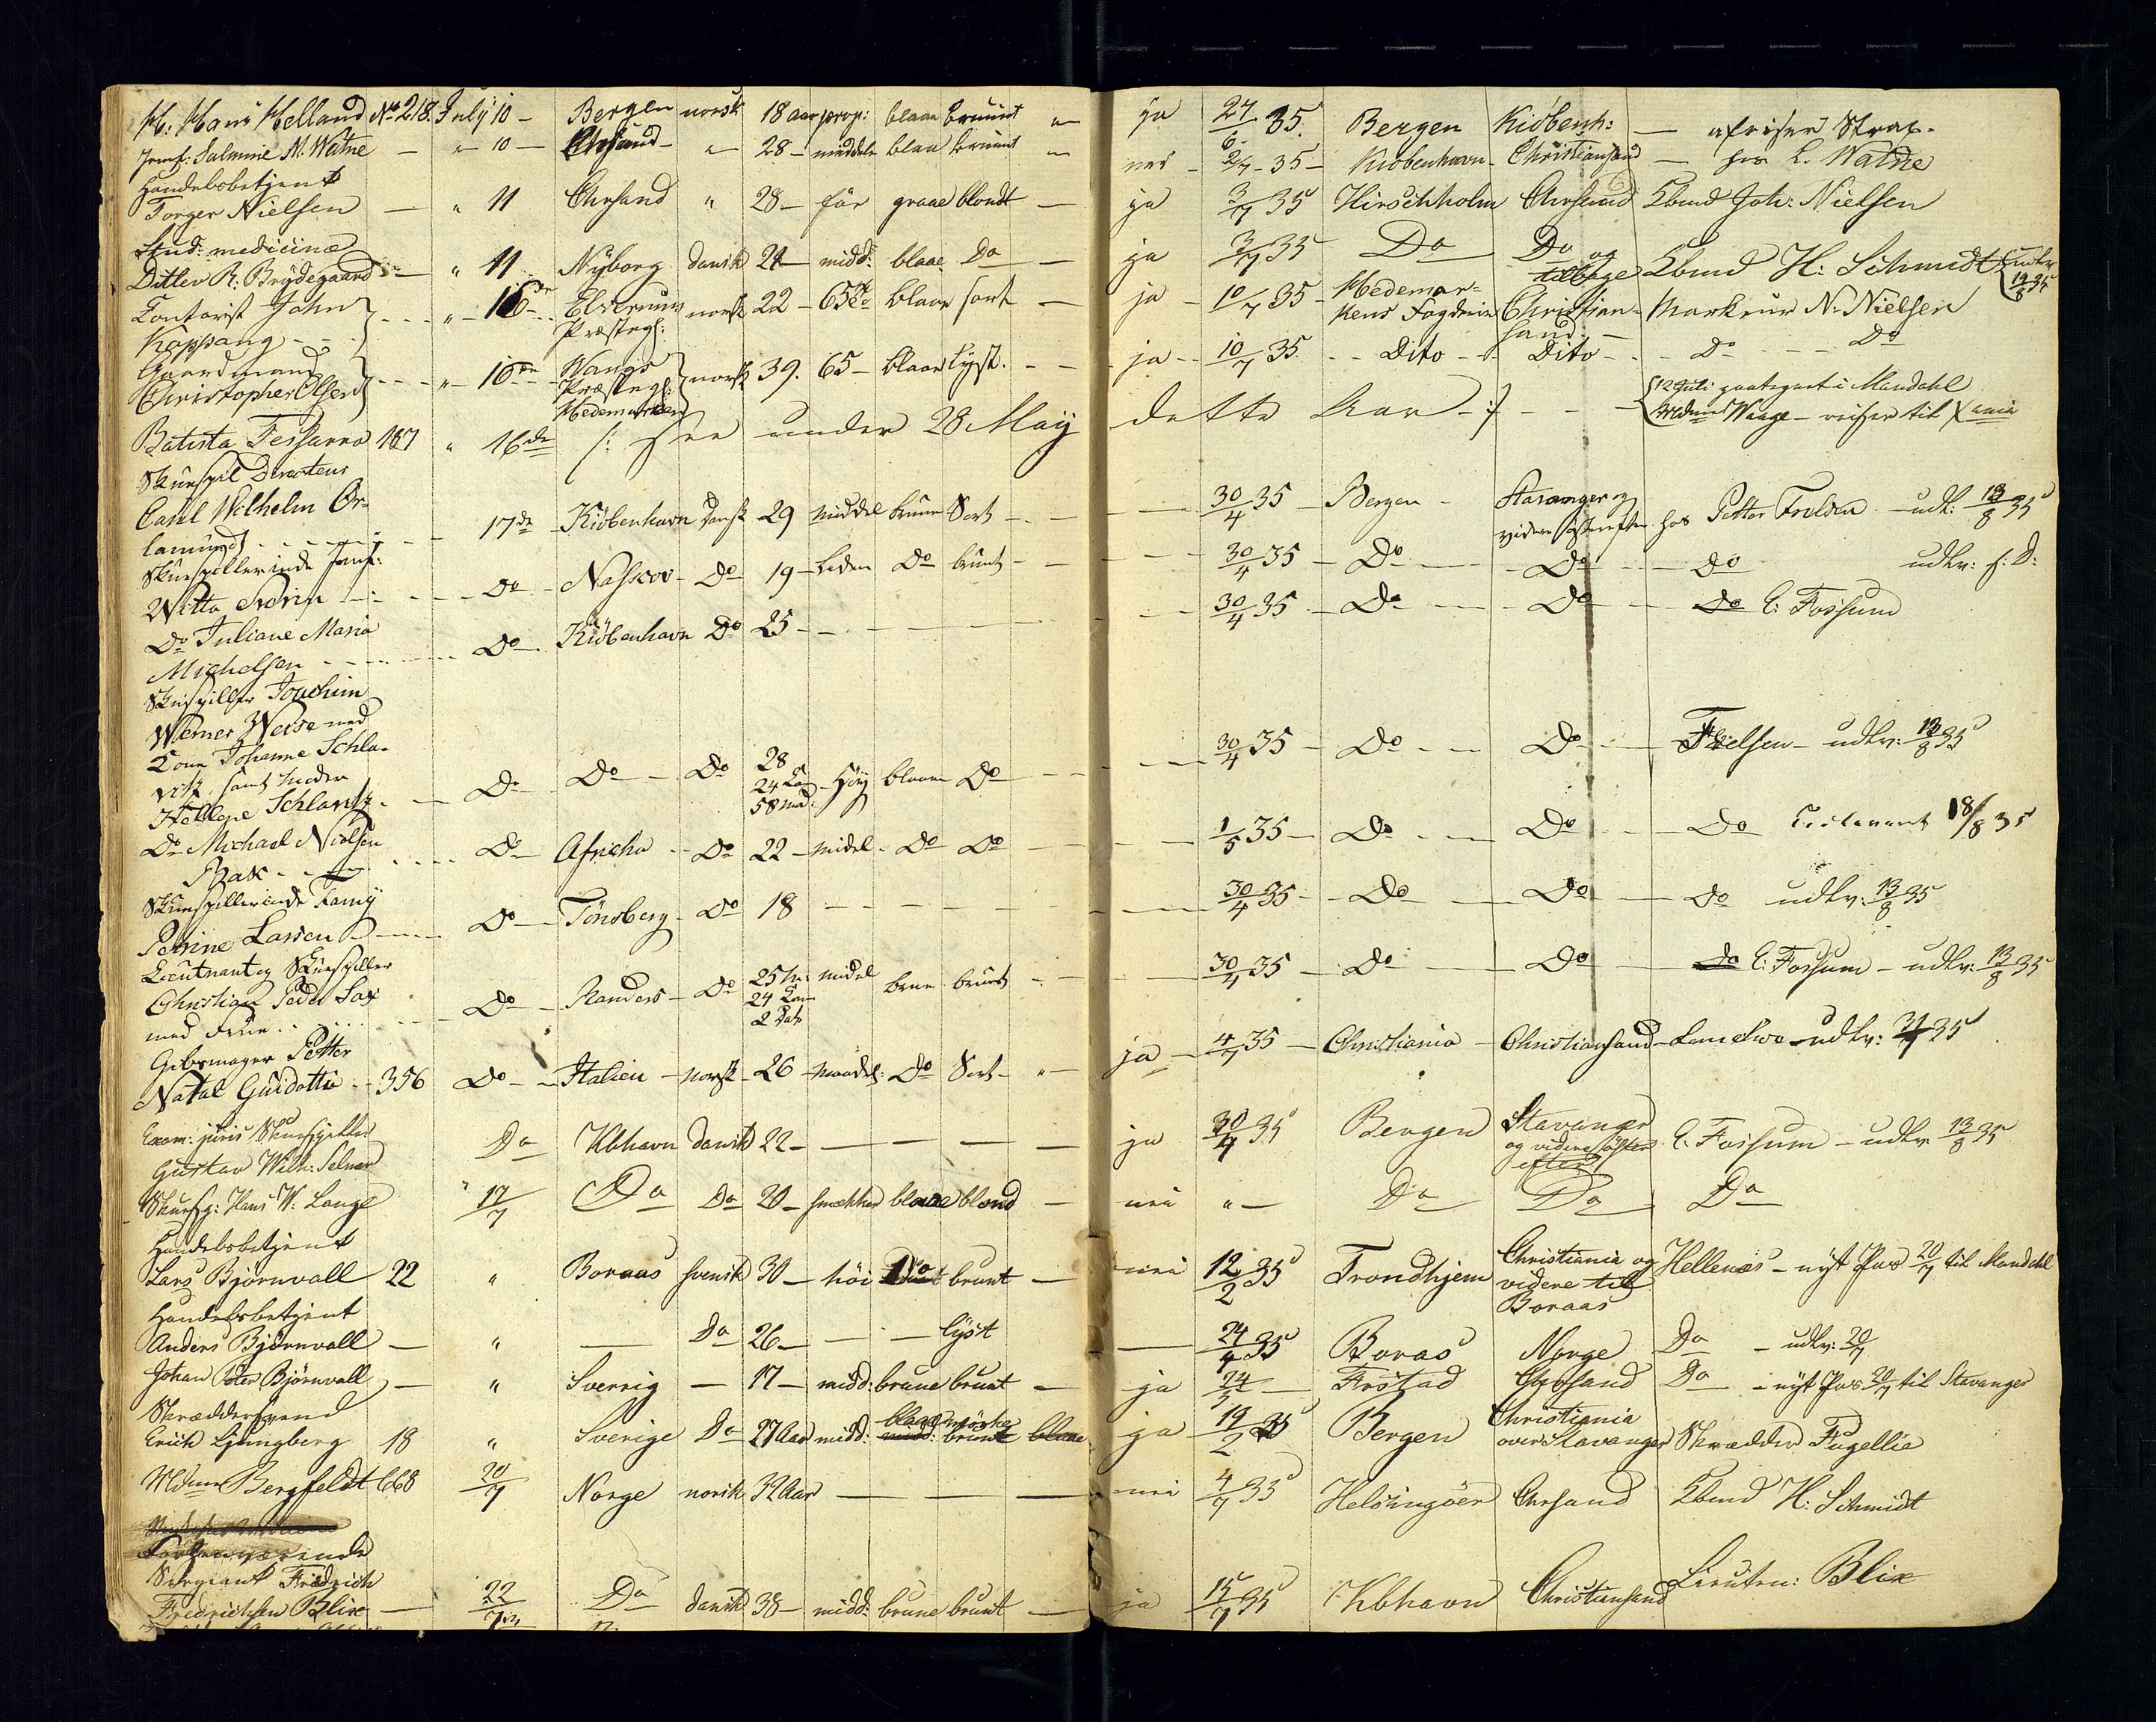 H. Hans Helland No 218. July 10 — Bergen norsk 18 aar prop: blaa bruunt „ ja 24/6 35. Bergen Kiöbenh: — afreiser Strax.
Jomf: Salmine M. Watne — „ 10 — Chrsand — „ 28 — middels blaa bruunt „ nei 2/7 35 — Kiöbenhavn Christiansand — hos L. Watne
Handelsbetjent
Torger Nielsen — „ 11 Chrsand „ 28 — før graae blondt — ja 3/7 35 Hirschholm Chrsand Kbmd Joh: Nielsen
Stud: medicinæ
Ditlev R. Brÿdegaard — „ 11 Nÿborg dansk 21 — midd: blaae Do — ja 3/7 35 Do Do og tilbage Kbmd H: Schmidt
Contorist John
Kappang „ 16de Elverums Præstegl: norsk 22 — 65 blaae sort — ja 10/7 35 Hedemarkens Fogderie Christiansand Markeur N. Nielsen
Gaardmand
Christopher Olsen „ 16de Wangs Præstegl: Hedemarken norsk 39. 65 — blaae Lÿst. — ja 10/7 35 Dito Dito Do Do
Batista Tessarro 187 „ 16de /: see under 28 May dette Aar :/ — 12 Juli
Mdme Waage — reiser til Xania
Skuespil Directeur
Carl Wilhelm Or-
lamundt 17de Kiöbenhavn dansk 29 middel bruun Sort — 30/4 35 — Bergen Stavanger og videre hos Petter — udl: 13/8 35
Skuespillerinde Jomf:
Witta — Do Nasscov Do 19 — Liden Do bruunt — 30/4 35 — Do Do do udlv: s: D:
Do Juliane Maria
Michelsen Do Kiöbenhavn Do 25 — 30/4 35 — Do — Do — E: Fossum
Skuespiller Joachim
Werner Weise med
Kone Johanne Schla-
vitz, samt Moder
Hellene Do Do — Do 28 24 58 Höÿ blaae Do — 30/4 35 — Do Do udlv: 13/8 35
Do Michael Nielsen
Bax Do Africha Do 22 — midel Do Do — 1/5 35 — Do Do Do 18/8 35
Skuespillerinde Famÿ
Petrine Larsen Do Tönsberg — Do 18 — 30/4 35 — Do Do do udlv: 13/8 35
Lieutnant og Skuespiller
Christian Peder Sax
med Frue Do Randers — Do 25 24 2 midel brun bruunt — 30/4 35 — Do Do E: Fossum — udlv: 13/8 35
Gibsmager Petter
Natal Guidotti — 356 Do — Italien — norsk — 26 — middel: Do Sort — „ ja — 4/7 35 — Christiania — Christiansand — udlv: 35
Exam: juris Skuespiller
Gustav Wilh: Selmer Do Kbhavn dansk 22 — ja 30/4 35 Bergen Stavanger og videre öster efter E: Fossum — udlv 13/8 35
Skuesp: Hans W: Lange 17/7 Do Do 20 — smækker blaae blond — nei „ — Do Do Do
Handelsbetjent
Lars Björnvall 22 „ Boraas svensk 30 — höi Do brunt — nei 12/2 35 Trondhjem Christiania og videre til Boraas Hellenæs — nÿt Pas 20/7 til Mandahl
Handelsbetjent
Anders Björnvall — „ — Do 26 — — lÿst — 24/4 35 Boras Norge Do — udlv: 20/7
Johan Peter Björnvall — „ Sverrig — 17 — midd: brune brunt — ja 24/ — Chrsand Do — nÿt Pas 20/7 til Stavanger
Skræddersvend
Erich Ljungberg 18 „ Sverige Do 27 Aar midd: blaae mörke brunt blaae ja 19/2 35 Bergen Christiania over Stavanger Skrædder Fugellie
Mdme Bergfeldt 668 20/7 Norge norsk 32 Aar — nei 4/7 35 Helsingöer Chrsand Kbmd H: Schmidt
Forhenværende
Sergeant Fredrich
Fredrichsen Blix — 22/7 Do dansk 38 — midd: brune brunt — ja 15/7 35 Kbhavn Christiansand Lieuten: Blix